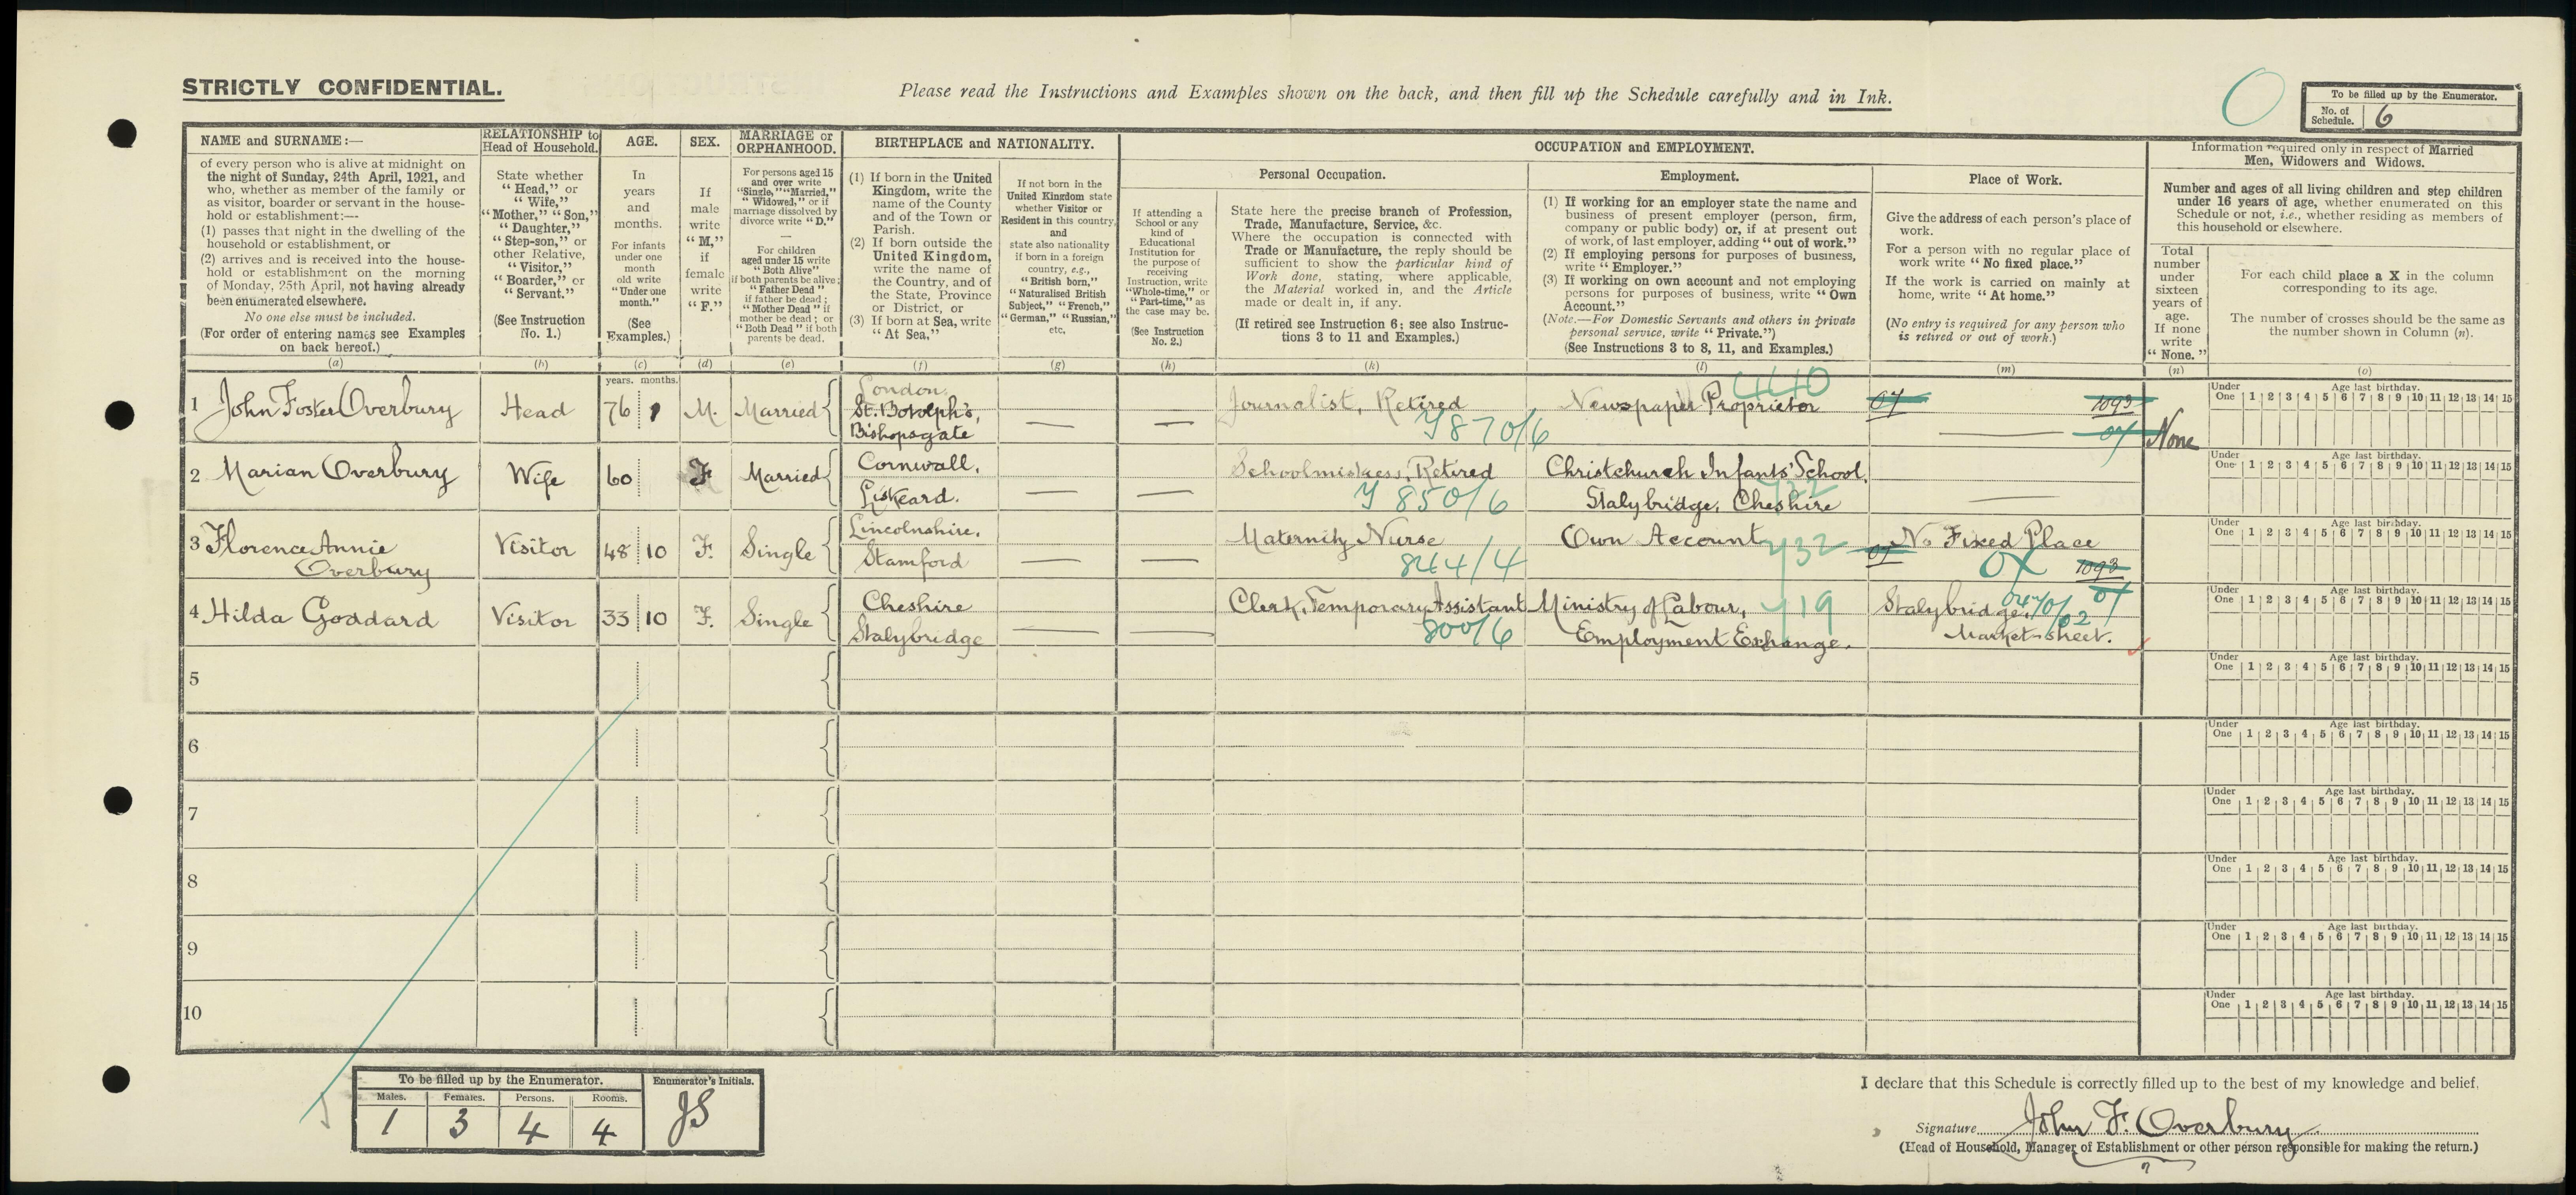 STRICTLY CONFIDENTIAL.
Please read the Instructions and Examples shown on the back, and then fill up the Schedule carefully and in Ink.
O
To be filled up by the Enumerator.
No. of Schedule. 6
NAME and SURNAME:—
of every person who is alive at midnight on
the night of Sunday, 24th April, 1921, and
who, whether as member of the family or
as visitor, boarder or servant in the house-
hold or establishment:—
(1) passes that night in the dwelling of the
household or establishment, or
(2) arrives and is received into the house-
hold or establishment on the morning
of Monday, 25th April, not having already
been enumerated elsewhere.
No one else must be included.
(For order of entering names see Examples
on back hereof.)
(a)
RELATIONSHIP to
Head of Household.
State whether
"Head," or
"Wife,"
"Mother," "Son,"
"Daughter,"
"Step-son," or
other Relative,
"Visitor,"
"Boarder," or
"Servant."
(See Instruction
No. 1.)
(b)
AGE.
In
years
and
months.
For infants
under one
month
old write
"Under one
month."
(See
Examples.)
(c)
SEX.
If
male
write
"M,"
if
female
write
"F."
(d)
MARRIAGE or
ORPHANHOOD.
For persons aged 15
and over write
"Single," "Married,"
"Widowed," or if
marriage dissolved by
divorce write "D."
—
For children
aged under 15 write
"Both Alive"
if both parents be alive;
"Father Dead"
if father be dead;
"Mother Dead" if
mother be dead; or
"Both Dead" if both
parents be dead.
(e)
BIRTHPLACE and NATIONALITY.
(1) If born in the United
Kingdom, write the
name of the County
and of the Town or
Parish.
(2) If born outside the
United Kingdom,
write the name of
the Country, and of
the State, Province
or District, or
(3) If born at Sea, write
"At Sea,"
(f)
If not born in the
United Kingdom state
whether Visitor or
Resident in this country,
and
state also nationality
if born in a foreign
country, e.g.,
"British born,"
"Naturalised British
Subject," "French,"
"German," "Russian,"
etc.
(g)
OCCUPATION and EMPLOYMENT.
If attending a
School or any
kind of
Educational
Institution for
the purpose of
receiving
Instruction, write
"Whole-time," or
"Part-time," as
the case may be.
(See Instruction
No. 2.)
(h)
Personal Occupation.
State here the precise branch of Profession,
Trade, Manufacture, Service, &c.
Where the occupation is connected with
Trade or Manufacture, the reply should be
sufficient to show the particular kind of
Work done, stating, where applicable,
the Material worked in, and the Article
made or dealt in, if any.
(If retired see Instruction 6; see also Instruc-
tions 3 to 11 and Examples.)
(k)
Employment.
(1) If working for an employer state the name and
business of present employer (person, firm,
company or public body) or, if at present out
of work, of last employer, adding "out of work."
(2) If employing persons for purposes of business,
write "Employer."
(3) If working on own account and not employing
persons for purposes of business, write "Own
Account."
(Note.—For Domestic Servants and others in private
personal service, write "Private.")
(See Instructions 3 to 8, 11, and Examples.)
(l)
Place of Work.
Give the address of each person's place of
work.
For a person with no regular place of
work write "No fixed place."
If the work is carried on mainly at
home, write "At home."
(No entry is required for any person who
is retired or out of work.)
(m)
Information required only in respect of Married
Men, Widowers and Widows.
Number and ages of all living children and step children
under 16 years of age, whether enumerated on this
Schedule or not, i.e., whether residing as members of
this household or elsewhere.
Total
number
under
sixteen
years of
age.
If none
write
"None."
(n)
For each child place a X in the column
corresponding to its age.
The number of crosses should be the same as
the number shown in Column (n).
(o)
years. months.
1 John Foster Overbury Head 76 1 M. Married London. St. Botolph's, Bishopsgate — — Journalist, Retired Y870/6 Newspaper Proprietor 4440 07 1093 — 07 None
Under One Age last birthday. 1 2 3 4 5 6 7 8 9 10 11 12 13 14 15
2 Marian Overbury Wife 60 F Married Cornwall. Liskeard. — — Schoolmistress, Retired Y 850/6 Christchurch Infants' School. Stalybridge, Cheshire —
Under One Age last birthday. 1 2 3 4 5 6 7 8 9 10 11 12 13 14 15
3 Florence Annie Overbury Visitor 48 10 F. Single Lincolnshire. Stamford — — Maternity Nurse 844/4 Own Account 732 No Fixed Place 07 OX 1093
Under One Age last birthday. 1 2 3 4 5 6 7 8 9 10 11 12 13 14 15
4 Hilda Goddard Visitor 33 10 F. Single Cheshire Stalybridge — — Clerk, Temporary Assistant 800/6 Ministry of Labour, Employment Exchange. 719 Stalybridge, Market-street. 07
Under One Age last birthday. 1 2 3 4 5 6 7 8 9 10 11 12 13 14 15
5
Under One Age last birthday. 1 2 3 4 5 6 7 8 9 10 11 12 13 14 15
6
Under One Age last birthday. 1 2 3 4 5 6 7 8 9 10 11 12 13 14 15
7
Under One Age last birthday. 1 2 3 4 5 6 7 8 9 10 11 12 13 14 15
8
Under One Age last birthday. 1 2 3 4 5 6 7 8 9 10 11 12 13 14 15
9
Under One Age last birthday. 1 2 3 4 5 6 7 8 9 10 11 12 13 14 15
10
Under One Age last birthday. 1 2 3 4 5 6 7 8 9 10 11 12 13 14 15
To be filled up by the Enumerator.
Males. Females. Persons. Rooms.
1 3 4 4
Enumerator's Initials.
JS
I declare that this Schedule is correctly filled up to the best of my knowledge and belief.
Signature John F. Overbury
(Head of Household, Manager of Establishment or other person responsible for making the return.)